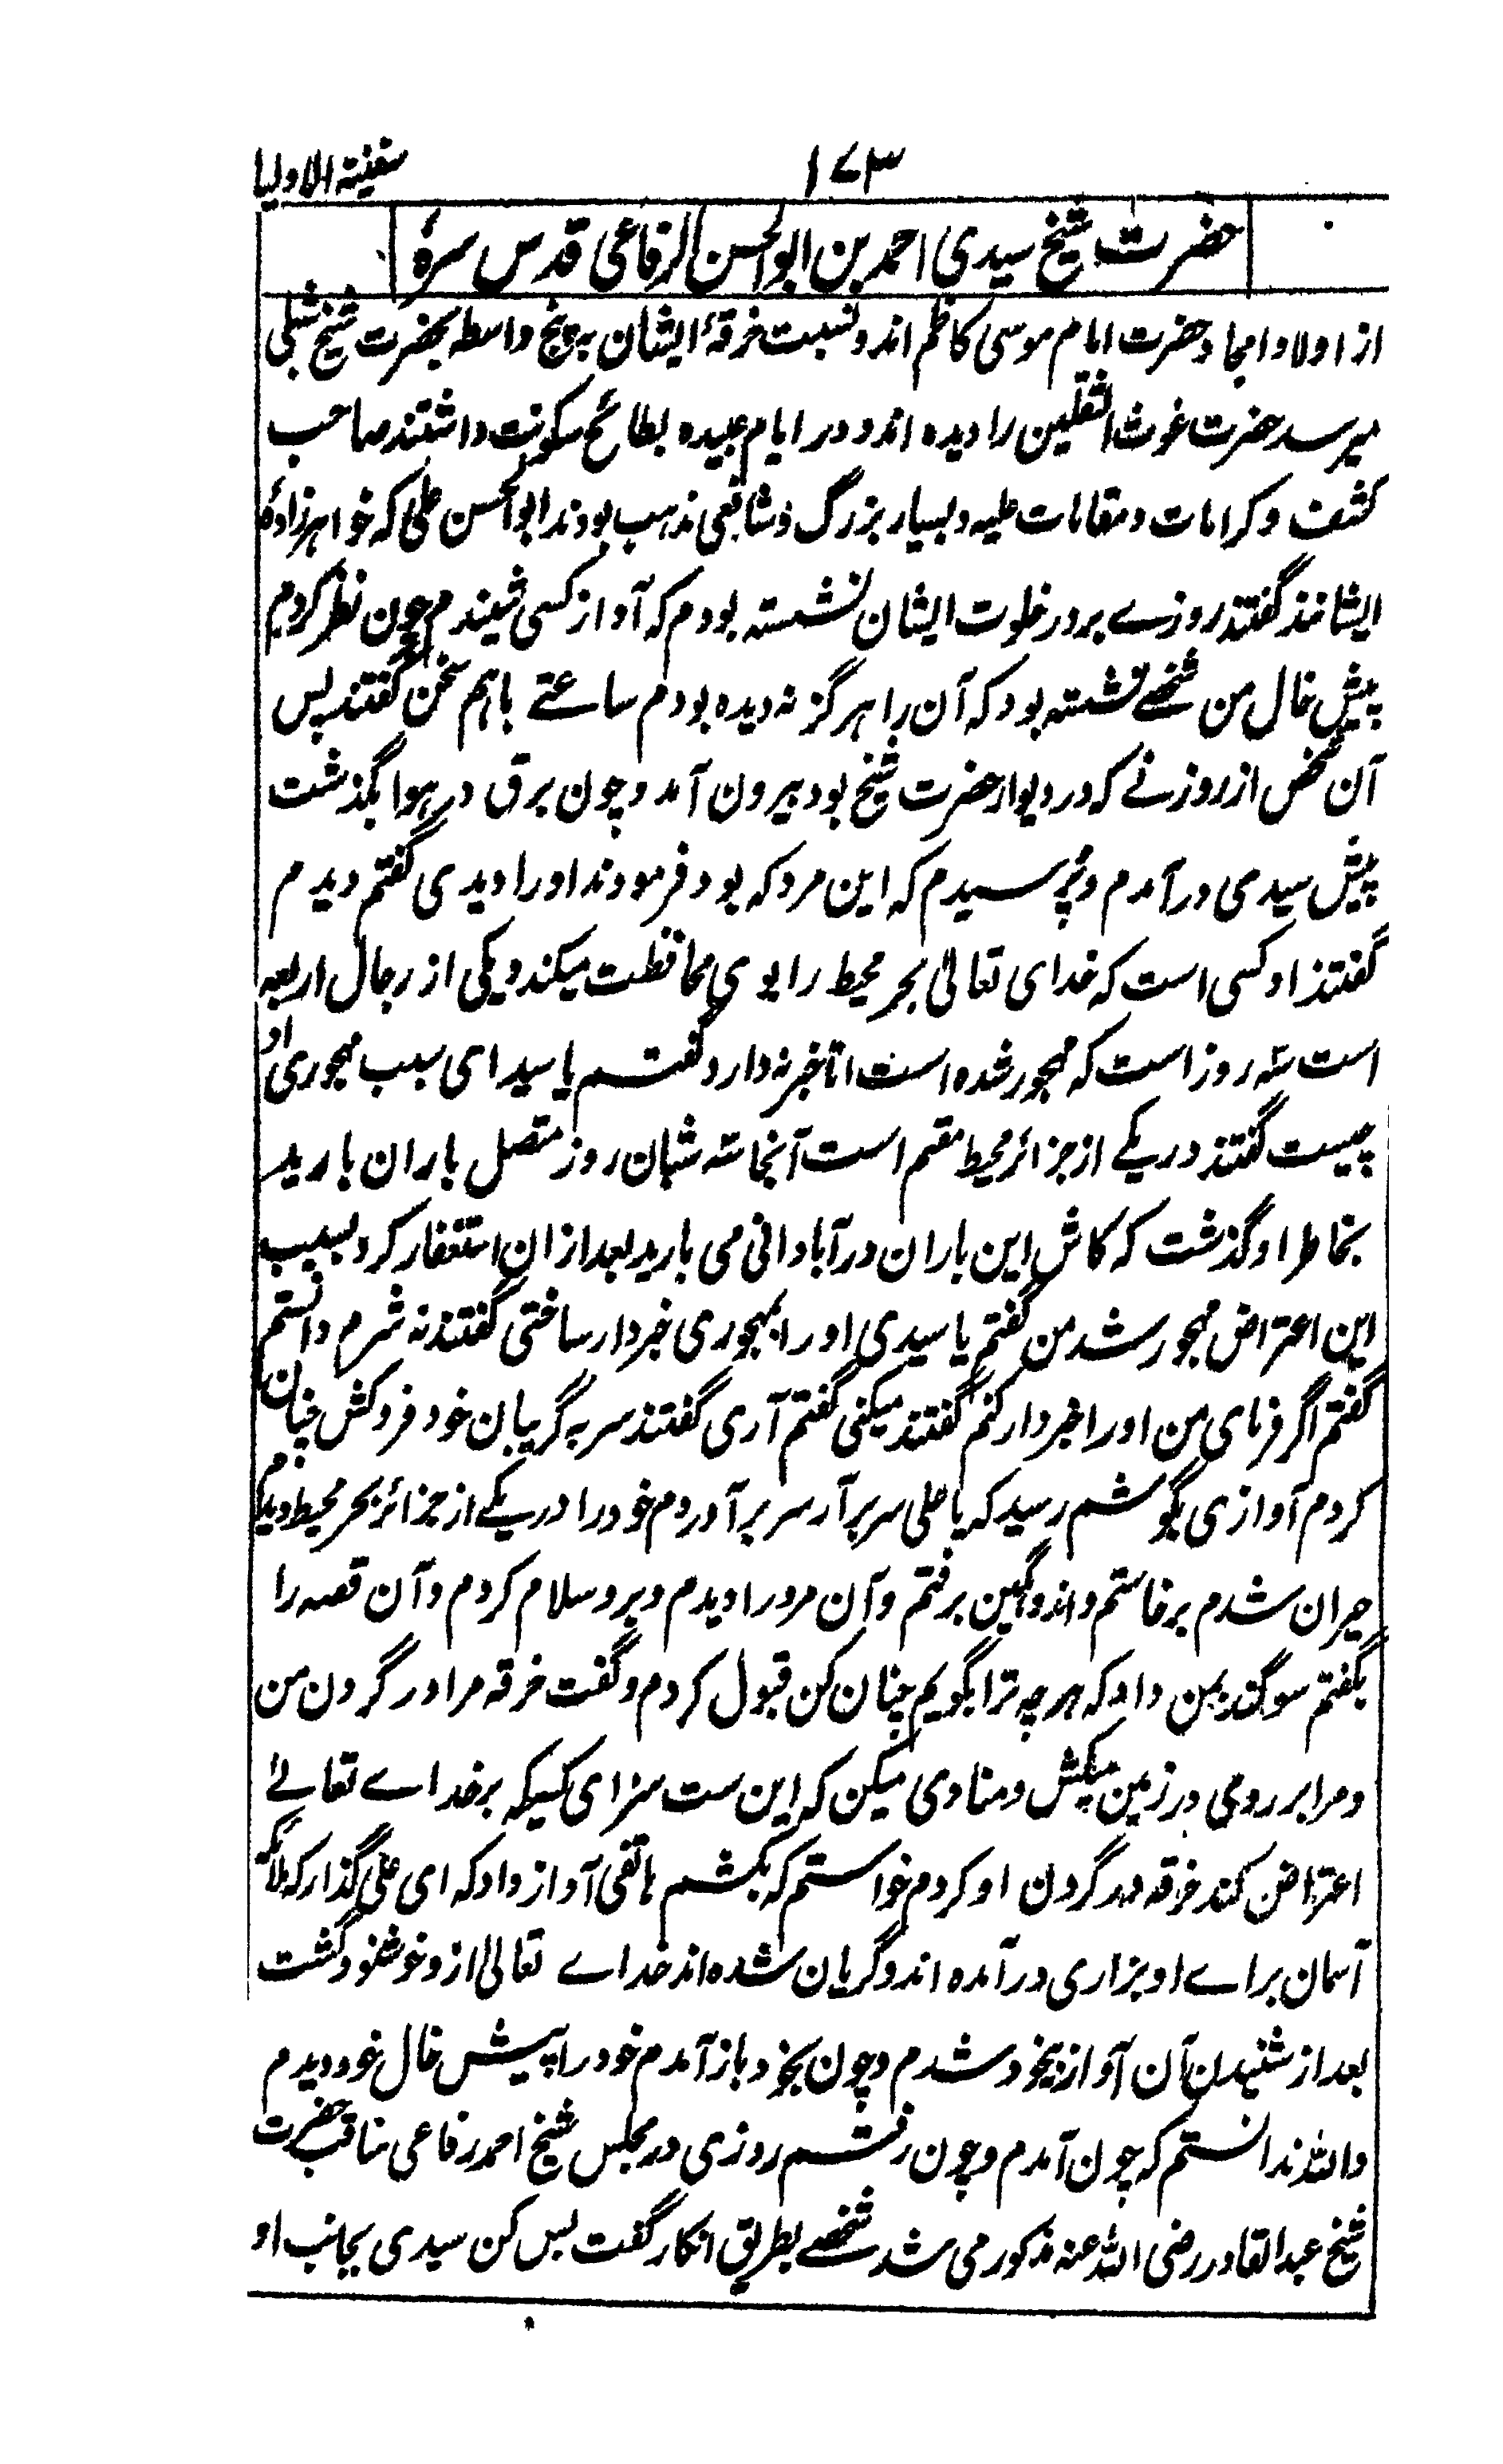 سفینۃ الاولیا
۱۷۳
حضرت شیخ سیدی احمد بن ابو الحسن الرفاعی قدس سرہٗ
از اولاد امجاد حضرت امام موسی کاظم اند و نسبت خرقۂ ایشان به پنج واسطه بحضرت شیخ شبلی
میرسد حضرت غوث الثقلین را دیده اند و در ایام عبیده بطائح سکونت داشتند صاحب
کشف و کرامات و مقامات علیه و بسیار بزرگ و شافعی مذہب بودند ابو الحسن علی که خواہرزادۂ
ایشانند گفتند روزے بر در خلوت ایشان نشسته بودم که آواز کسی شنیدم چون نظر کردم
پیش خال من شخصے نشسته بود که آن را ہرگز نه دیده بودم ساعتے باہم سخن گفتند پس
آن شخص از روزنے که در دیوار حضرت شیخ بود بیرون آمد و چون برق در ہوا بگذشت
پیش سیدی درآمدم و پرسیدم که این مرد که بود فرمودند او را دیدی گفتم دیدم
گفتند او کسی است که خدای تعالیٰ بحر محیط را بوی محافظت میکند و یکی از رجال اربعه
است سه روز است که مہجور شده است اما خبر نه دارد گفتم یا سیدا می سبب مہجوری او
چیست گفتند در یکے از جزائر محیط مقیم است آنجا سه شبان روز متصل باران بارید
بخاطر او گذشت که کاش این باران در آبادانی می بارید بعد ازان استغفار کرد بسبب
این اعتراض مہجور شد من گفتم یا سیدی او را بمہجوری خبردار ساختی گفتند نه شرم دانستم
گفتم اگر فرمای من او را خبردار کنم گفتند میکنی گفتم آری گفتند سر به گریبان خود فروکش چنان
کردم آوازی بگوشم رسید که یا علی سر برآر سر برآوردم خود را در یکے از جزائر بحر محیط دیدم
حیران شدم برخاستم و اندوہگین برفتم و آن مرد را دیدم و برو سلام کردم و آن قصه را
بگفتم سوگند بمن داد که ہر چه ترا بگویم چنان کن قبول کردم و گفت خرقه مرا در گردن من
و مرا بر رومی در زمین میکش و منادی میکن که این ست سزای کسیکه بر خداے تعالےٰ
اعتراض کند خرقه در گردن او کردم خواستم که بکشم ہاتفی آواز داد که ای علی گذار که ملائکه
آسمان براے او بزاری درآمده اند و گریان شده اند خداے تعالیٰ ازو خوشنود گشت
بعد از شنیدن آن آواز بیخود شدم و چون بخود باز آمدم خود را پیش خال خود دیدم
واللہ ندانستم که چون آمدم و چون رفتم روزی در مجلس شیخ احمد رفاعی مناقب حضرت
شیخ عبدالقادر رضی اللہ عنه مذکور می شد شخصے بطریق انکار گفت بس کن سیدی بجانب او